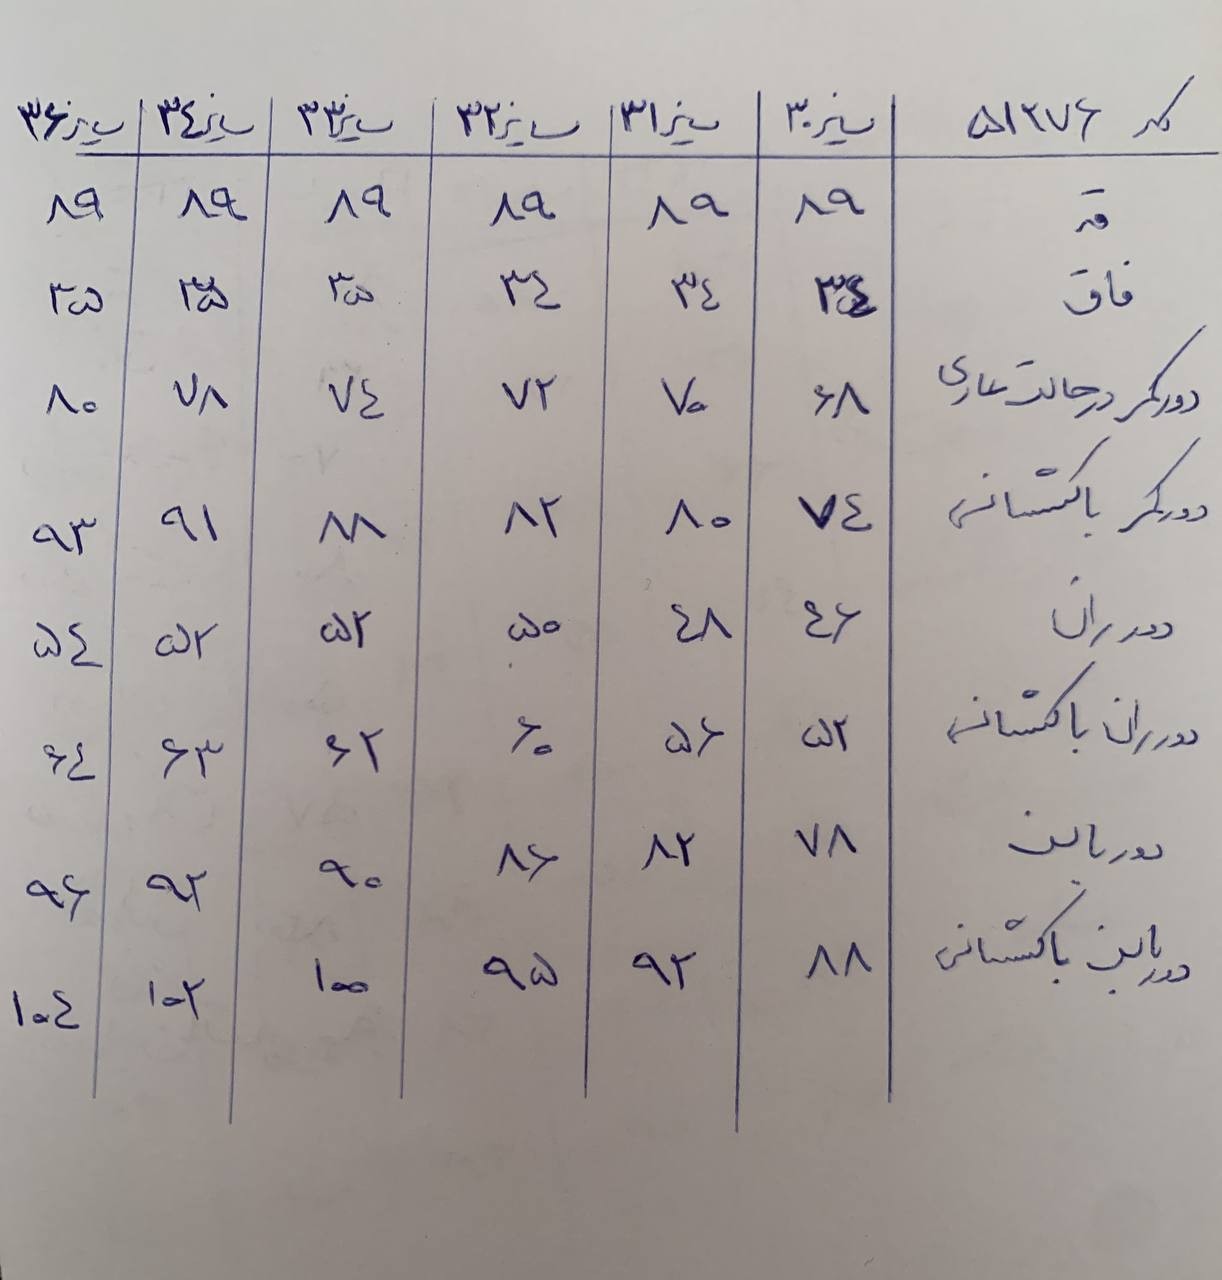 کد ۵۱۲۷۶ سایز ۳۰ سایز ۳۱ سایز ۳۲ سایز ۳۳ سایز ۳۴ سایز ۳۶
قد ۸۹ ۸۹ ۸۹ ۸۹ ۸۹ ۸۹
فاق ۳۴ ۳۴ ۳۴ ۳۵ ۳۵ ۳۵
دورکمر درحالت عادی ۶۸ ۷۰ ۷۲ ۷۴ ۷۸ ۸۰
دورکمر باکشسانی ۷۴ ۸۰ ۸۲ ۸۸ ۹۱ ۹۳
دور ران ۴۶ ۴۸ ۵۰ ۵۲ ۵۲ ۵۴
دور ران باکشسانی ۵۲ ۵۶ ۶۰ ۶۲ ۶۳ ۶۴
دور باسن ۷۸ ۸۲ ۸۶ ۹۰ ۹۲ ۹۶
دور باسن باکشسانی ۸۸ ۹۲ ۹۵ ۱۰۰ ۱۰۲ ۱۰۴